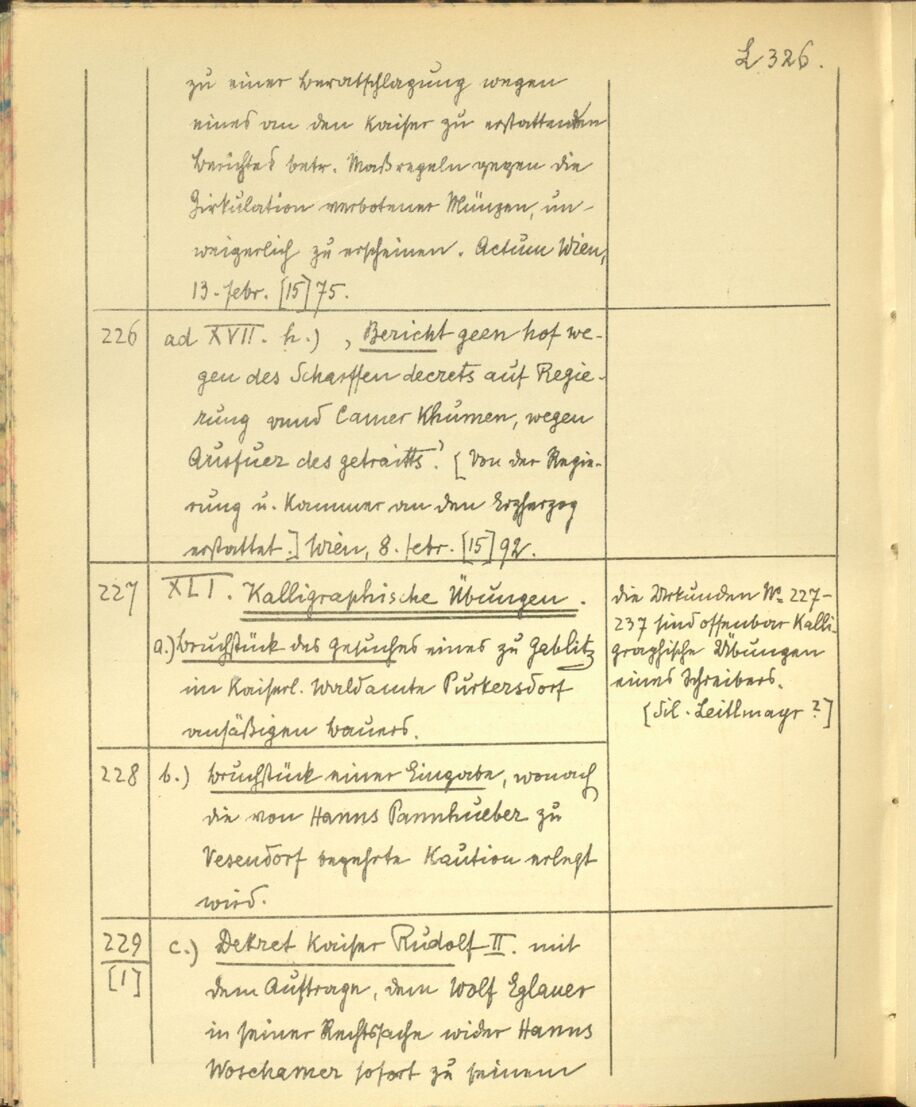 L 326.
zu einer Beratschlagung wegen
eines an den Kaiser zu erstattenden
Berichtes betr. Maßregeln gegen die
Zirkulation verbotener Münzen, un-
weigerlich zu erscheinen. Actum Wien,
13. Febr. [15]75.
226
ad XVII. h.) , Bericht geen hof we-
gen des Scharffen decrets auf Regie-
rung vnnd Camer Khumen, wegen
Ausfuer des getraitts.' [Von der Regie-
rung u. Kammer an den Erzherzog
erstattet.] Wien, 8. Febr. [15]92.
227
XLI. Kalligraphische Übungen.
a.) Bruchstück des Gesuches eines zu Gablitz
im Kaiserl. Waldamte Purkersdorf
ansäßigen Bauers.
die Urkunden No. 227-
237 sind offenbar Kalli-
graphische Übungen
eines Schreibers.
[Sil. Leitlmayr?]
228
b.) Bruchstück einer Eingabe, wonach
die von Hanns Pannhueber zu
Vesendorf begehrte Kaution erlegt
wird.
229
[1]
c.) Dekret Kaiser Rudolf II. mit
dem Auftrage, dem Wolf Eglauer
in seiner Rechtssache wider Hanns
Woschamer sofort zu seinem